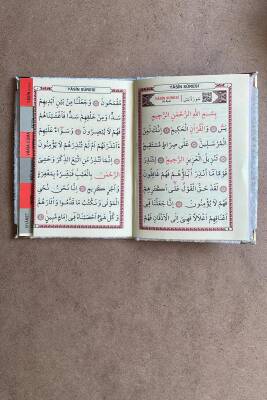 YÂSÎN SÛRESİ
YÂSÎN SÛRESİ سُورَةُ يٰسٓ
بِسْمِ اللّٰهِ الرَّحْمٰنِ الرَّحِيمِ
يٰسٓ وَالْقُرْاٰنِ الْحَكِيمِ اِنَّكَ لَمِنَ
الْمُرْسَلِينَ عَلٰى صِرَاطٍ مُسْتَقِيمٍ
تَنْزِيلَ الْعَزِيزِ الرَّحِيمِ لِتُنْذِرَ
قَوْمًا مَٓا اُنْذِرَ اٰبَٓاؤُهُمْ فَهُمْ غَافِلُونَ
لَقَدْ حَقَّ الْقَوْلُ عَلٰٓى اَكْثَرِهِمْ
فَهُمْ لَا يُؤْمِنُونَ اِنَّا جَعَلْنَا فِٓي
اَعْنَاقِهِمْ اَغْلَالًا فَهِيَ اِلَى الْاَذْقَانِ فَهُمْ
YÂSÎN SÛRESİ
مُقْمَحُونَ وَجَعَلْنَا مِنْ بَيْنِ اَيْدِيهِمْ
سَدًّا وَمِنْ خَلْفِهِمْ سَدًّا فَاَغْشَيْنَاهُمْ
فَهُمْ لَا يُبْصِرُونَ وَسَوَٓاءٌ عَلَيْهِمْ
ءَاَنْذَرْتَهُمْ اَمْ لَمْ تُنْذِرْهُمْ لَا يُؤْمِنُونَ
اِنَّمَا تُنْذِرُ مَنِ اتَّبَعَ الذِّكْرَ وَخَشِيَ
الرَّحْمٰنَ بِالْغَيْبِ فَبَشِّرْهُ بِمَغْفِرَةٍ
وَاَجْرٍ كَرِيمٍ اِنَّا نَحْنُ نُحْيِ
الْمَوْتٰى وَنَكْتُبُ مَا قَدَّمُوا وَاٰثَارَهُمْ
وَكُلَّ شَيْءٍ اَحْصَيْنَاهُ فِٓي اِمَامٍ مُبِينٍ